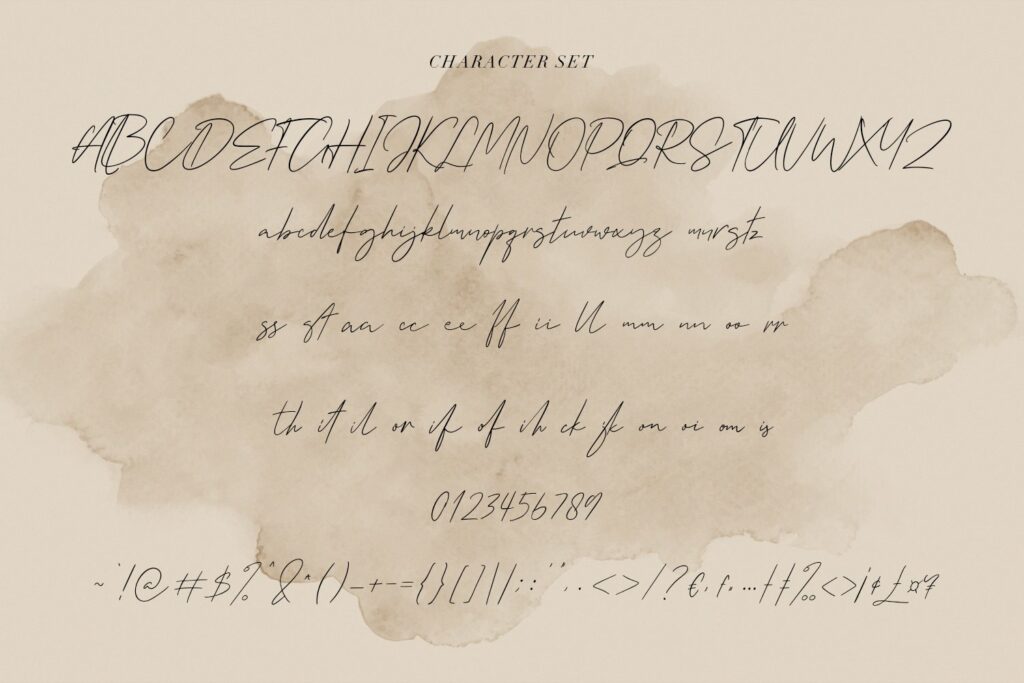 CHARACTER SET
ABCDEFGHIJKLMNOPQRSTUVWXYZ
abcdefghijklmnopqrstuvwxyz mnrstz
ss st aa cc ee ff ii ll mm nn oo rr
th it il or if of ih ck fc on oi om is
0123456789
~`!@#$%^&*()_+-={}[]|\;:"',.<>/?€‚ƒ„…†‡‰‹›¡¢£¤¥